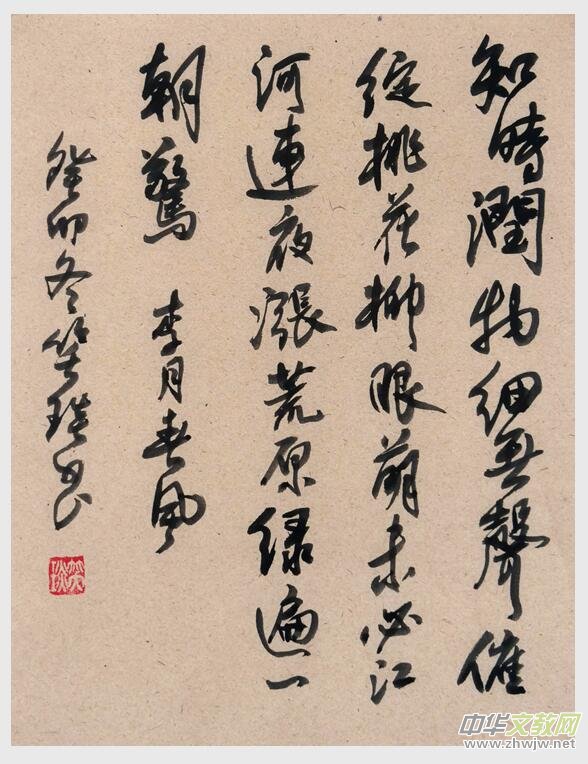 知時潤物細無聲催
綻桃花柳眼萌未必江
河連夜漲荒原绿遍一
朝驚 李月春風
癸卯冬笑琰书
中华文教网
www.zhwjw.net